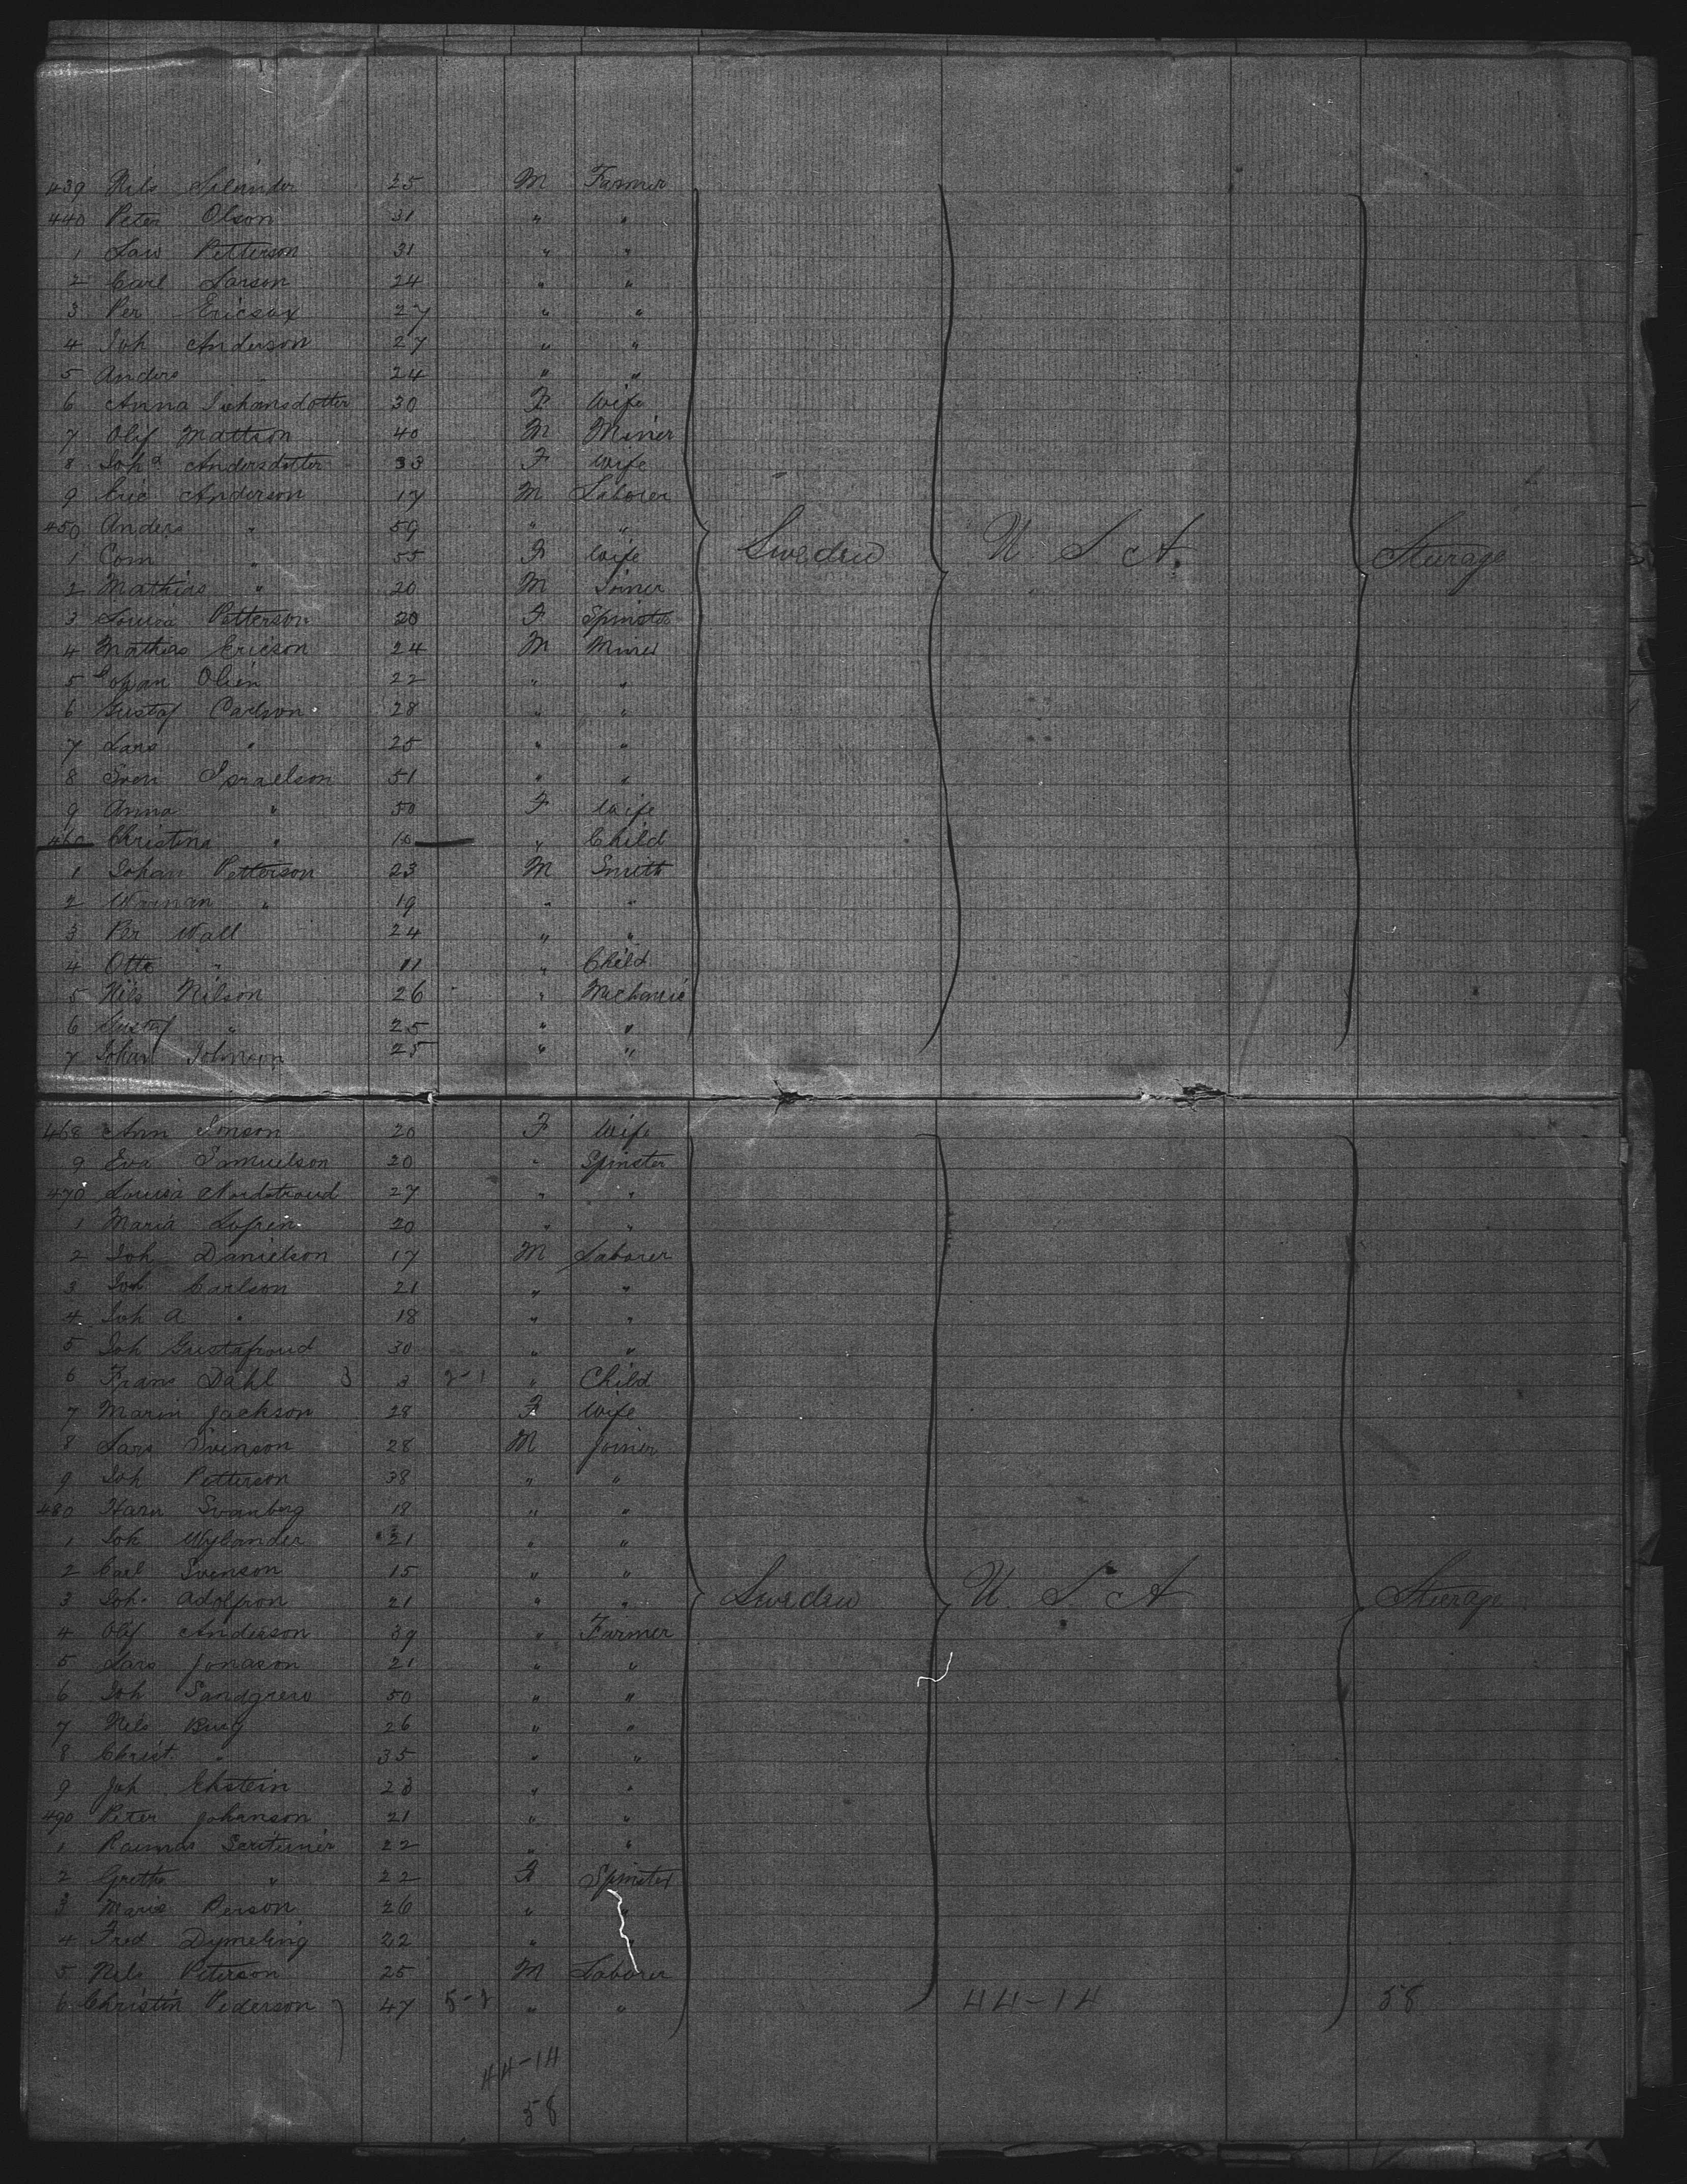 439 Nils 25 M Farmer
440 Peter Olson 31 " "
1 Lars Petterson 31 " "
2 Carl Larson 24 " "
3 Per 27 " "
4 Joh Anderson 27 " "
5 Anders " 24 " "
6 Anna Johansdotter 30 F Wife
7 Olif Mattson 40 M Miner
8 Joha Andersdotter 33 F Wife
9 Eric Anderson 17 M Laborer
450 Anders " 59 " "
1 " 55 F Wife Sweden U S A. Sterage
2 Mathias " 20 M Joiner
3 Louisa Petterson 20 F Spinster
4 Mathias Ericson 24 M Miner
5 Johan 22 " "
6 Gustaf Carlson 28 " "
7 Lars " 25 " "
8 Sven Israelson 51 " "
9 Anna " 50 F Wife
460 Christina " 10 " Child
1 Johan Petterson 23 M Smith
2 " 19 " "
3 Per Wall 24 " "
4 Otto " 11 " Child
5 Nils Nilson 26 " Mechanic
6 Gustaf " 25 " "
7 Johan Johnson 25 " "
468 Ann Jonson 20 F Wife
9 Eva Samuelson 20 " Spinster
470 Louisa Nordstroud 27 " "
1 Maria 20 " "
2 Joh Danielson 17 M Laborer
3 Joh Carlson 21 " "
4 Joh A " 18 " "
5 Joh 30 " "
6 Frans Dahl 3 " Child
7 Marin Jackson 28 F Wife
8 Lars Svenson 28 M Joiner
9 Joh Petterson 38 " "
480 Svanberg 18 " "
1 Joh 21 " "
2 Carl Svenson 15 " "
3 Joh. Adolfson 21 " " Sweden U. S. A Sterage
4 Olif Anderson 39 " Farmer
5 Lars Jonason 21 " "
6 Joh Sandgren 50 " "
7 Nils Burg 26 " "
8 Christ. " 35 " "
9 Joh Ekstein 23 " "
490 Peter Johanson 21 " "
1 22 " "
2 Grethe " 22 F Spinster
3 Marie Person 26 " "
4 Fred Dymeling 22 " "
5 Nils Peterson 25 M Laborer
6 Christin Pederson 47 " " 44-14 58
44-14
58